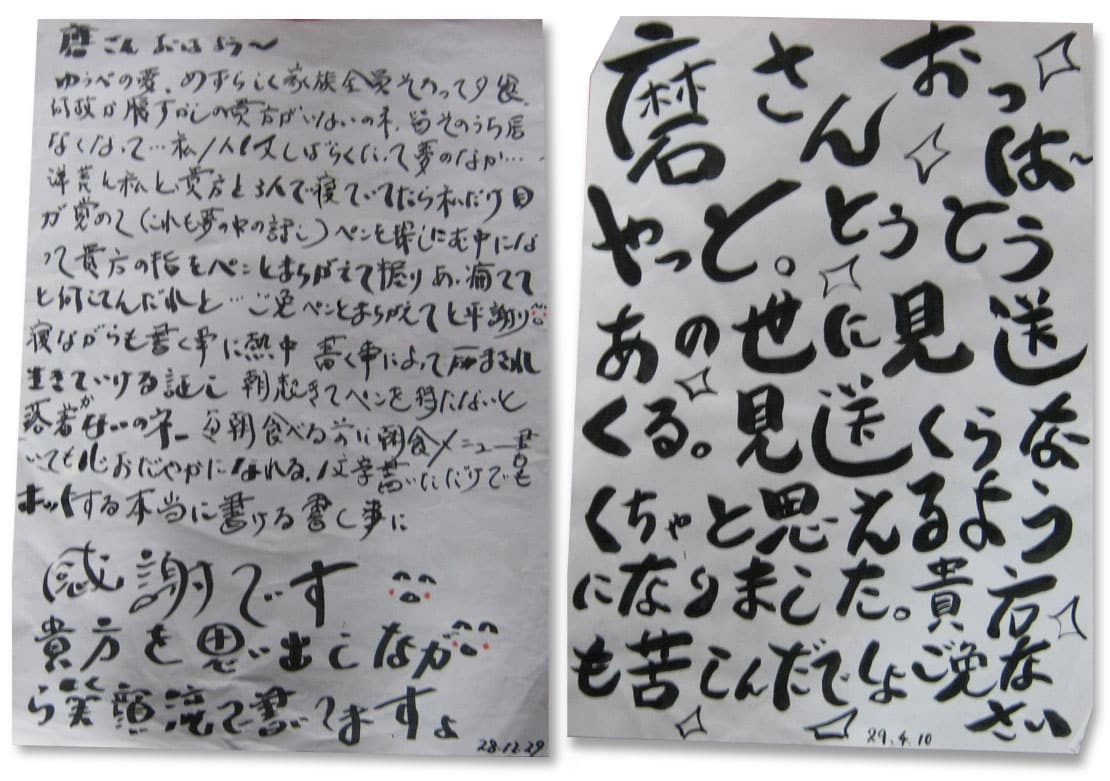 磨さんおはよう〜
ゆうべの夢、めずらしく家族全員そろって夕食、
何故か の貴方がいないのネ、皆そのうち居
なくなって…私1人又しばらくたって夢のなか…
私と、貴方と3人で寝ていてたら私だけ目
が覚めて(これも夢の中の話し)ペンを探しにむ中にな
って貴方の指をペンとまちがえて握りあ、痛てて
と何してんだれと…ご免ペンとまちがえてと平謝り
寝ながらも書く事に熱中 書く事によって励まされ
生きていける証し 朝起きてペンを持たないと
落着かないのネー 毎朝食べる前に朝食メニュー書
いても心おだやかになれる。1文字書いただけでも
ホットする本当に書ける書く事に
感謝です
貴方を思い出しなが
ら笑顔流で書いてますよ
28.12.29
磨さんおっは〜
やっと。とうとう
あの世に見送
くる。見送くらな
くちゃと思えるよう
になりました。貴方
も苦しんだでしょご免な
さい
29.4.10